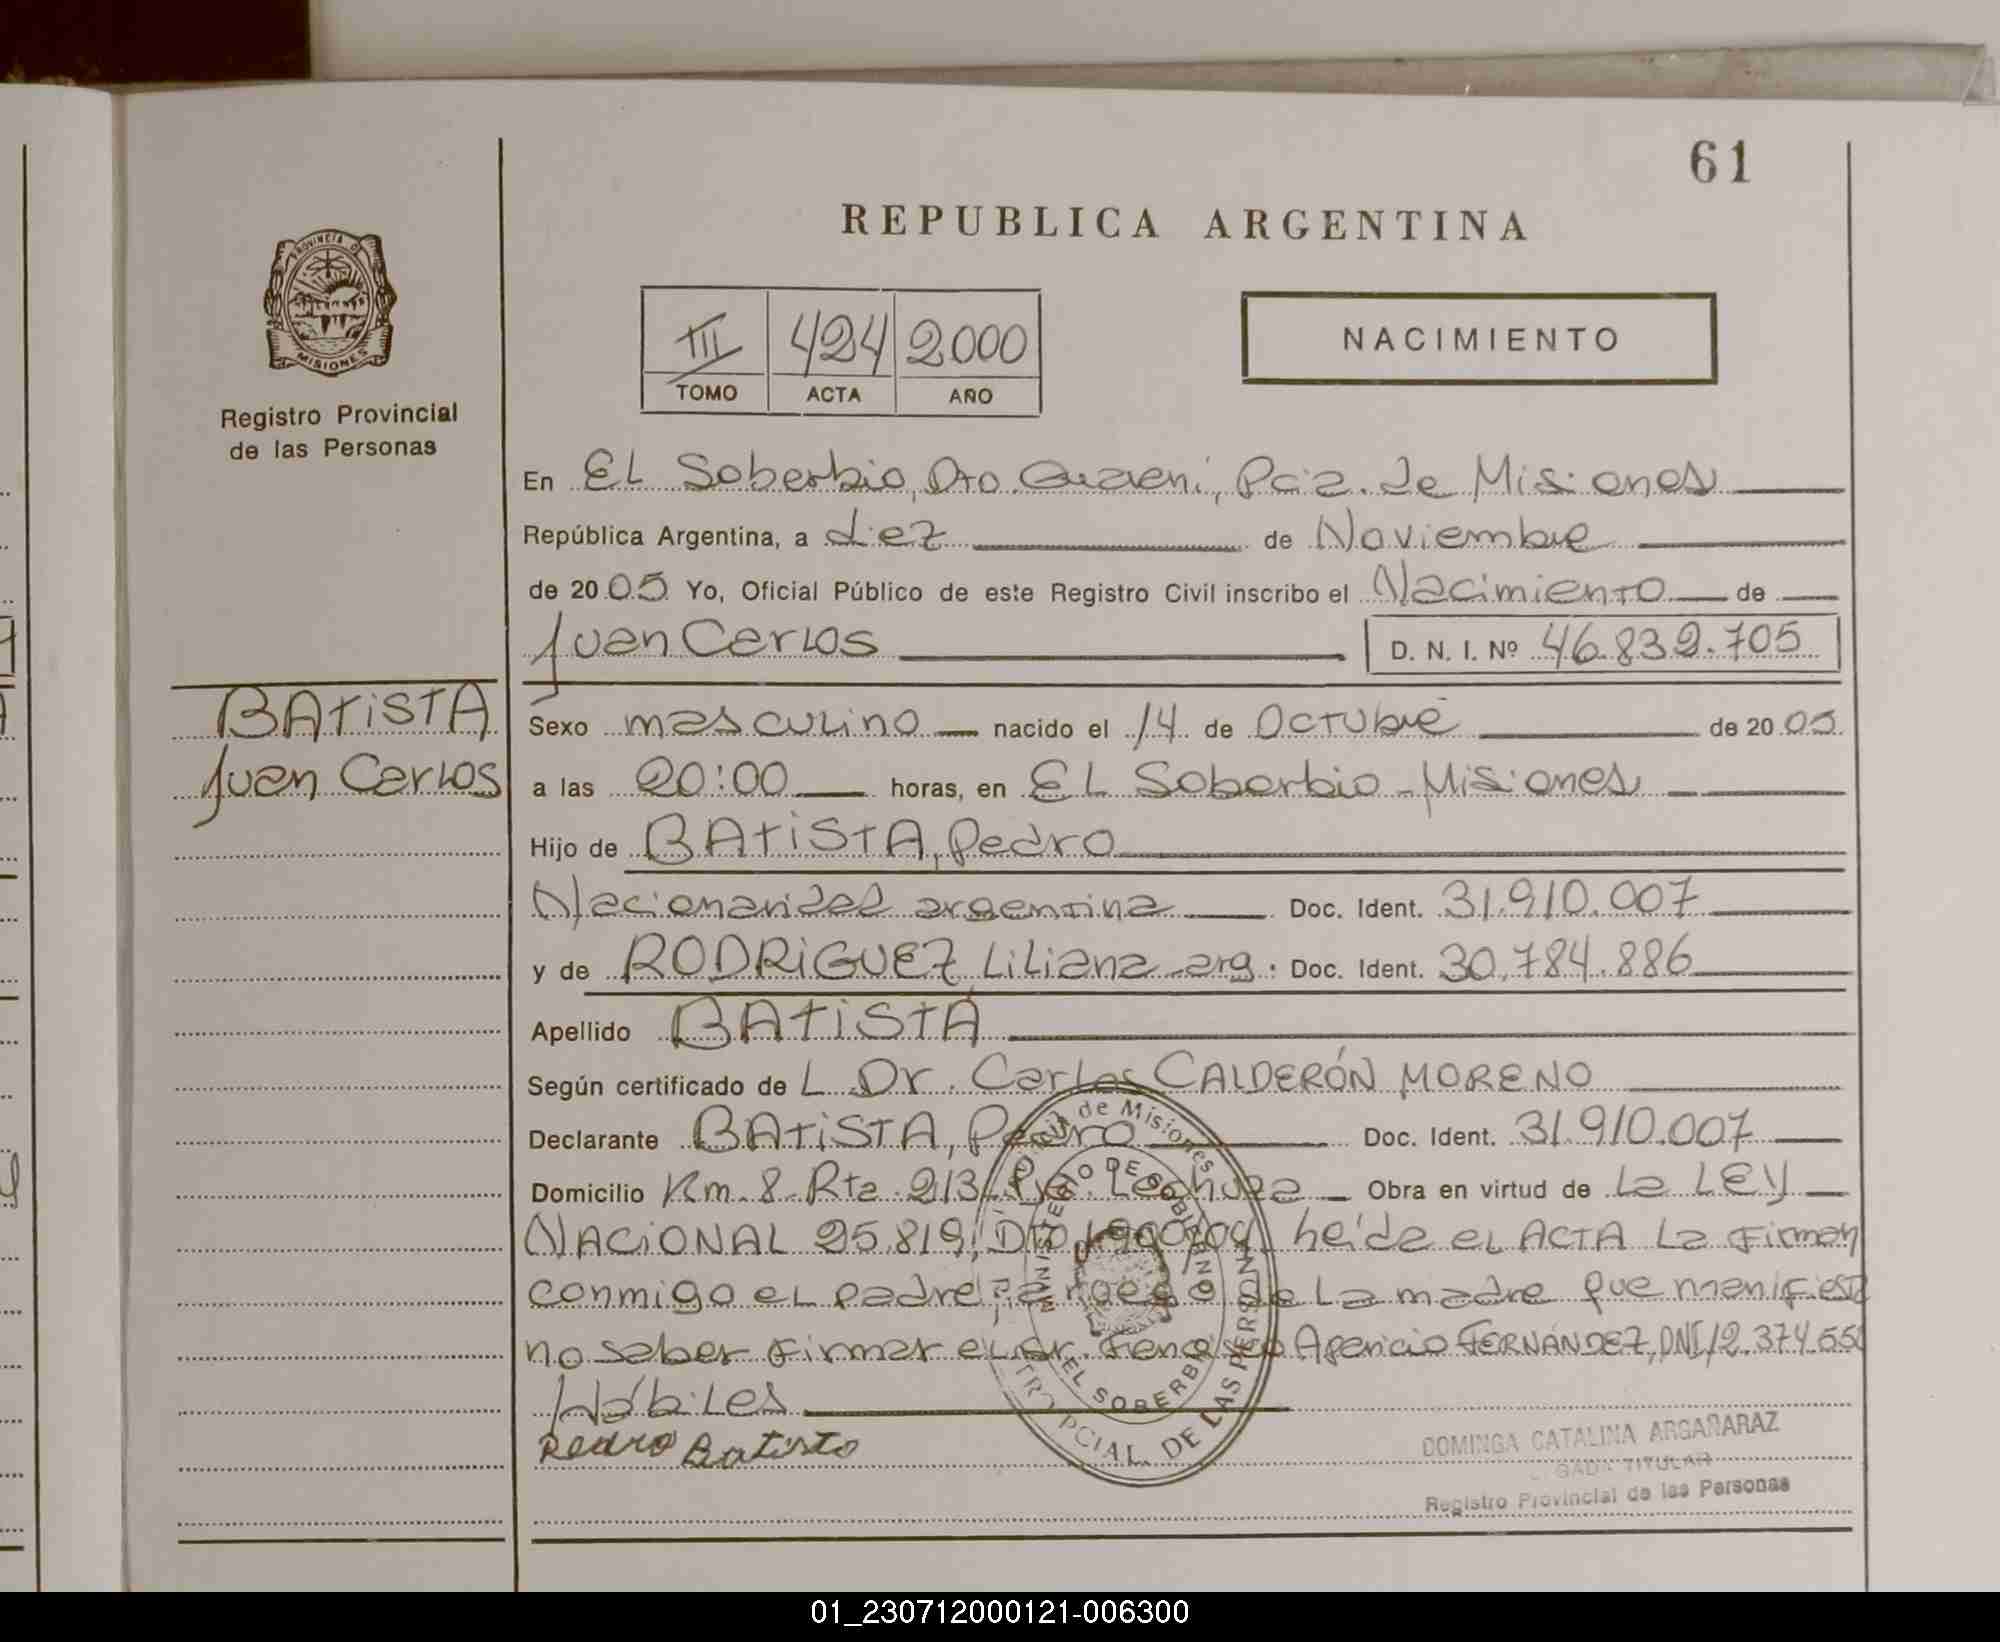 61
REPUBLICA ARGENTINA
PROVINCIA DE
MISIONES
Registro Provincial
de las Personas
III 424 2000
TOMO ACTA AÑO
NACIMIENTO
En EL Soberbio, Dto. Guarani, Pcia. de Misiones
República Argentina, a diez de Noviembre
de 2005 Yo, Oficial Público de este Registro Civil inscribo el Nacimiento de
Juan Carlos D. N. I. Nº 46.832.705
BATiSTA
Juan Carlos
Sexo masculino nacido el 14 de Octubre de 2005
a las 20:00 horas, en EL Soberbio - Misiones
Hijo de BATiSTA, Pedro
Nacionalidad argentina Doc. Ident. 31.910.007
y de RODRiGUEZ Liliana - arg. Doc. Ident. 30.784.886
Apellido BATiSTA
Según certificado de L Dr. Carlos CALDERÓN MORENO
Declarante BATiSTA, Pedro Doc. Ident. 31.910.007
Domicilio Km. 8 - Rta 213 Lechuza Obra en virtud de La LEY
NACiONAL 25.819, Dto leída el ACTA La firman
conmigo el padre, a ruego de La madre que manifiesta
no saber firmar el Sr. Francisco Aparicio FERNÁNDEZ, DNI 12.374.55
Hábiles
Pedro Batisto
MINISTERIO DE GOBIERNO
de Misiones
EL SOBERBIO
PCIAL. DE LAS PERSON
DOMINGA CATALINA ARGAÑARAZ
TITULAR
Registro Provincial de las Personas
01_230712000121-006300